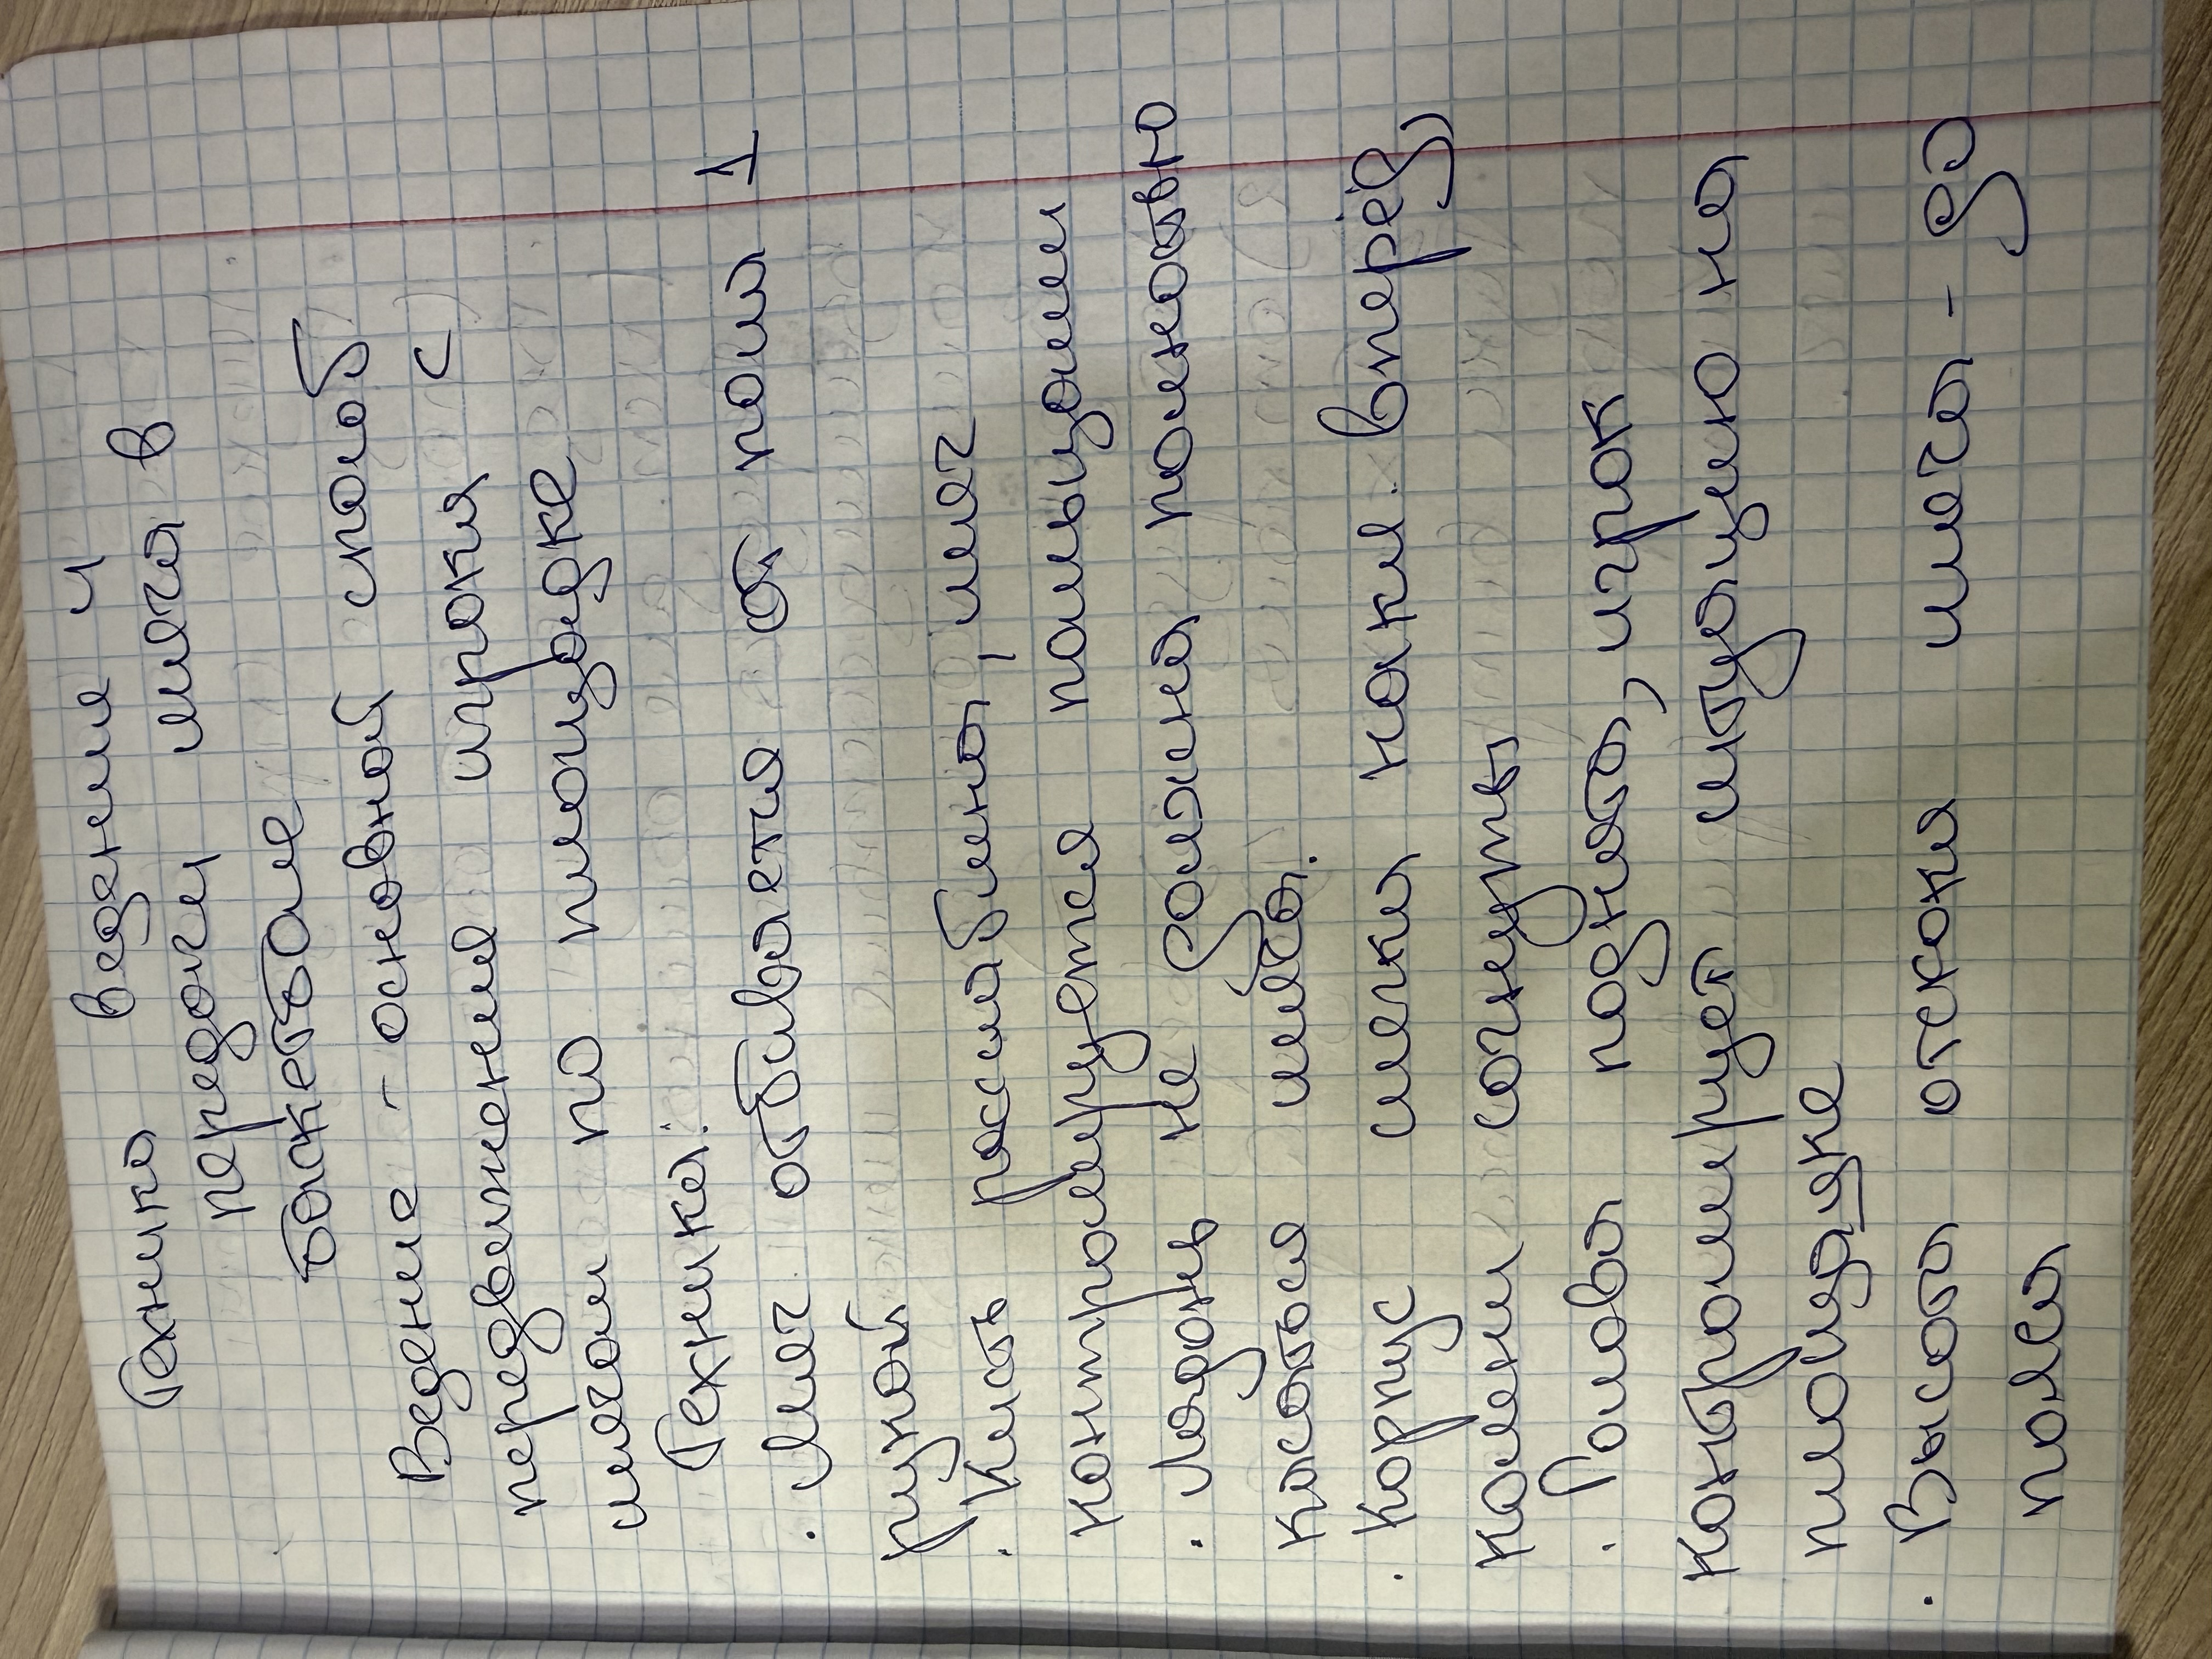 Техника ведения и
передачи мяча в
баскетболе
Ведение - основной способ
передвижения игрока с
мячом по площадке
Техника:
· Мяч отбивается от пола 1
рукой
· Кисть расслаблена, мяч
контролируется пальцами
· Ладонь не должна полностью
касаться мяча.
· Корпус слегка накл. вперёд,
колени согнуты
· Голова поднята, игрок
контролирует ситуацию на
площадке
· Высота отскока мяча - до
пояса